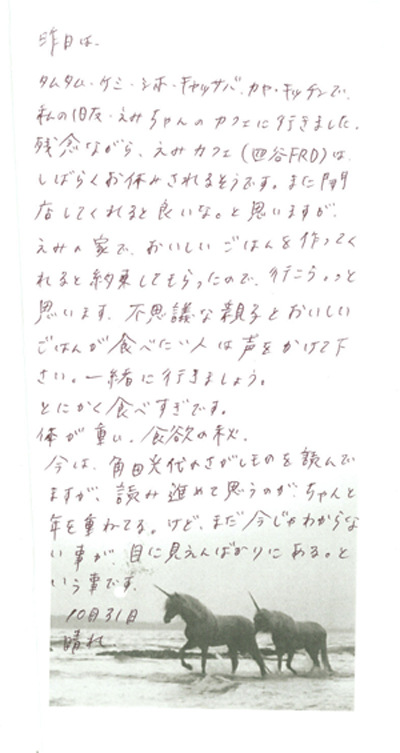 昨日は、
タムタム・ケミ・シホ・ギャッサバ・カヤ・キッチンで、
私の旧友・えみちゃんのカフェに行きました。
残念ながら、えみカフェ(四谷FRD)は、
しばらくお休みされるそうです。また開
店してくれると良いな。と思いますが、
えみの家で、おいしいごはんを作ってく
れると約束してもらったので、行こう。っと
思います。不思議な親子とおいしい
ごはんが食べたい人は声をかけて下
さい。一緒に行きましょう。
とにかく食べすぎです。
体が重い。食欲の秋。
今は、角田光代のさがしものを読んで
ますが、読み進めて思うのが、ちゃんと
年を重ねてる。けど、まだ今じゃわからな
い事が、目に見えんばかりにある。と
いう事です。
10月31日
晴れ